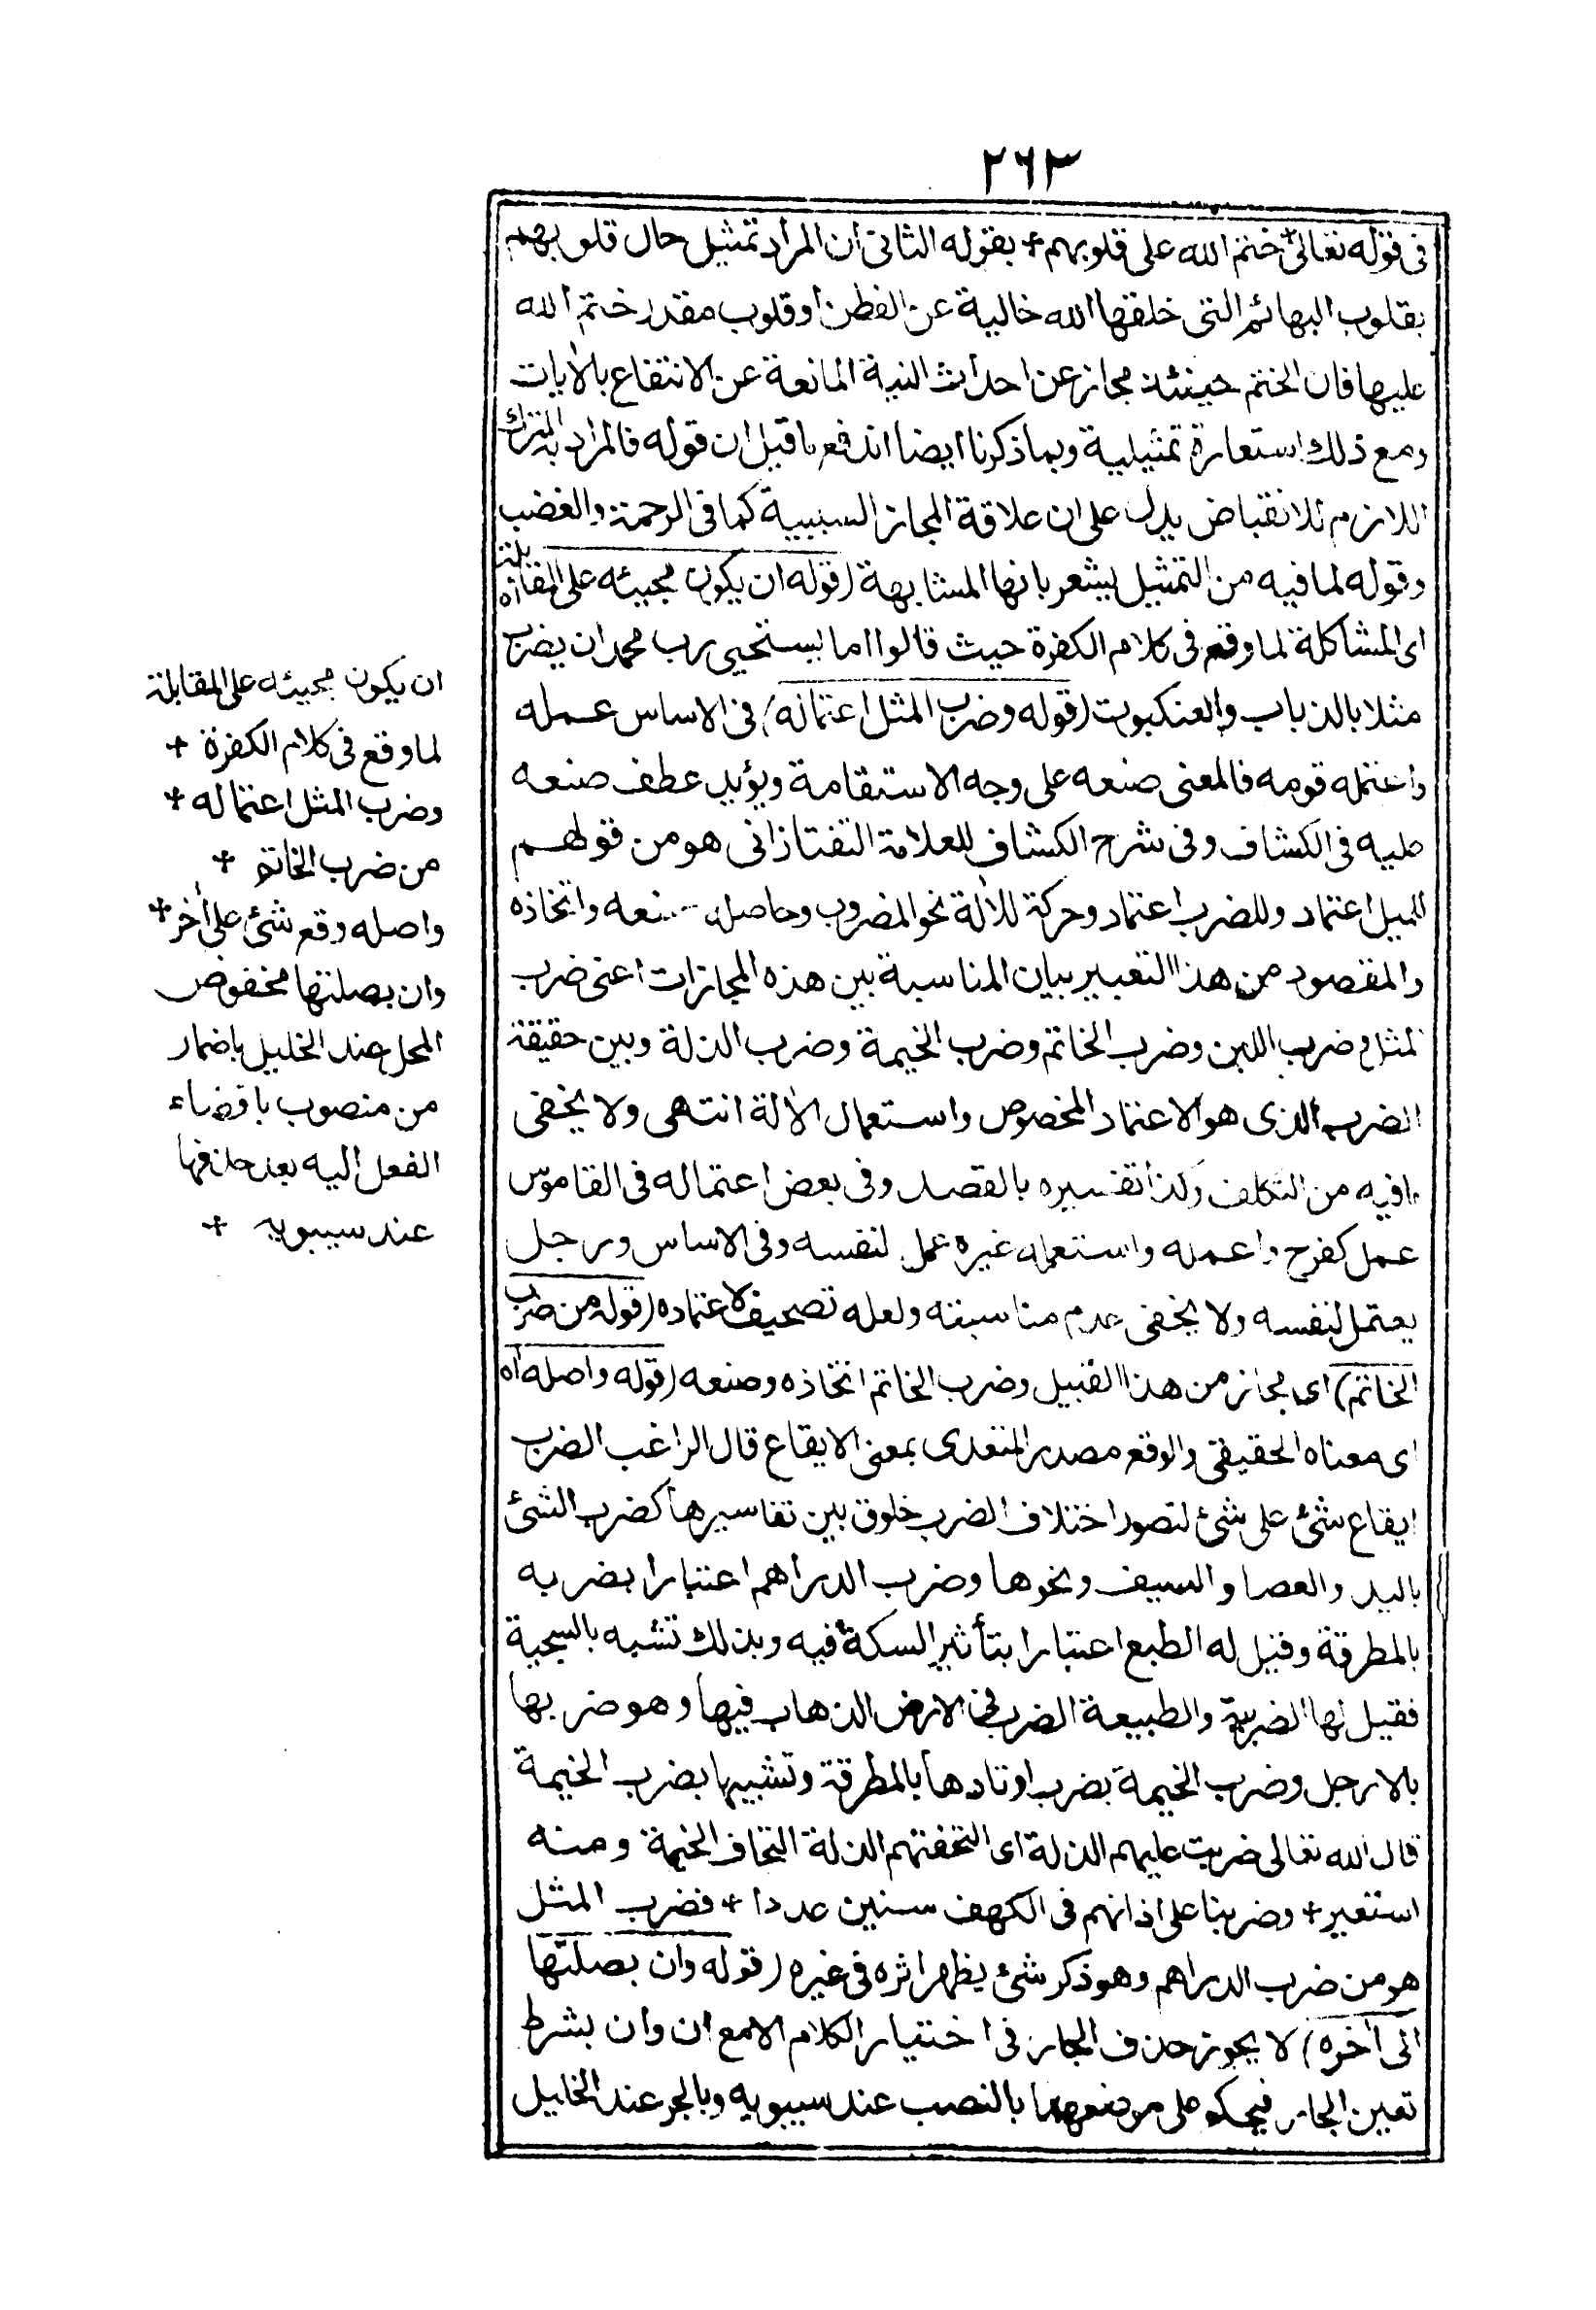 ٢٦٣
فى قوله تعالى + ختم الله على قلوبهم + بقوله الثانى ان المراد تمثيل حال قلوبهم
بقلوب البهائم التى خلقها الله خالية عن الفطن او قلوب مقدر ختم الله
عليها فان الختم حينئذ مجاز عن احداث الهيئة المانعة عن الانتفاع بالآيات
ومع ذلك استعارة تمثيلية وبما ذكرنا ايضا اندفع ما قيل ان قوله فالمراد به الترك
اللازم للانقباض يدل على ان علاقة المجاز السببية كما فى الرحمة والغضب
وقوله لما فيه من التمثيل يشعر بانها المشابهة (قوله ان يكون مجيئه على المقابلة اه
اى المشاكلة لما وقع فى كلام الكفرة حيث قالوا اما يستحيى رب محمد ان يضرب
مثلا بالذباب والعنكبوت (قوله وضرب المثل اعتماله) فى الاساس عمله
واعتمله قومه فالمعنى صنعه على وجه الاستقامة ويؤيد عطف صنعه
عليه فى الكشاف وفى شرح الكشاف للعلامة التفتازانى هو من قولهم
للميل اعتماد وللضرب اعتماد وحركة للآلة نحو المضروب وحاصله صنعه واتخاذه
والمقصود من هذا التعبير بيان المناسبة بين هذه المجازات اعنى ضرب
المثل وضرب اللبن وضرب الخاتم وضرب الخيمة وضرب الذلة وبين حقيقة
الضرب الذى هو الاعتماد المخصوص واستعمال الآلة انتهى ولا يخفى
مافيه من التكلف وكذا تفسيره بالقصد وفى بعض اعتماله فى القاموس
عمل كفرح واعمله واستعمله غيره عمل لنفسه وفى الاساس ورجل
يعتمل لنفسه ولا يخفى عدم مناسبته ولعله تصحيف لاعتماده (قوله من ضرب
الخاتم) اى مجاز من هذا القبيل وضرب الخاتم اتخاذه وصنعه (قوله واصله اه
اى معناه الحقيقى والوقع مصدر المتعدى بمعنى الايقاع قال الراغب الضرب
ايقاع شئ على شئ لتصور اختلاف الضرب خلوق بين تفاسيرها كضرب الشئ
باليد والعصا والسيف ونحوها وضرب الدراهم اعتبارا بضربه
بالمطرقة وقيل له الطبع اعتبارا بتأثير السكة فيه وبذلك تشبه بالسجية
فقيل لها الضريبة والطبيعة الضرب فى الارض الذهاب فيها وهو ضربها
بالارجل وضرب الخيمة بضرب اوتادها بالمطرقة وتشبيها بضرب الخيمة
قال الله تعالى ضربت عليهم الذلة اى التحفتهم الذلة التحاف الخيمة ومنه
استعير + وضربنا على اذانهم فى الكهف سنين عددا + فضرب المثل
هو من ضرب الدراهم وهو ذكر شئ يظهر اثره فى غيره (قوله وان بصلتها
الى آخره) لا يجوز حذف الجار فى اختيار الكلام الا مع ان وان بشرط
تعين الجار فيحكم على موضعهما بالنصب عند سيبويه وبالجر عند الخليل
ان يكون مجيئه على المقابلة
لما وقع فى كلام الكفرة +
وضرب المثل اعتماله +
من ضرب الخاتم +
واصله وقع شئ على آخر +
وان بصلتها مخفوض
المحل عند الخليل باضمار
من منصوب بافضاء
الفعل اليه بعد حذفها
عند سيبويه +